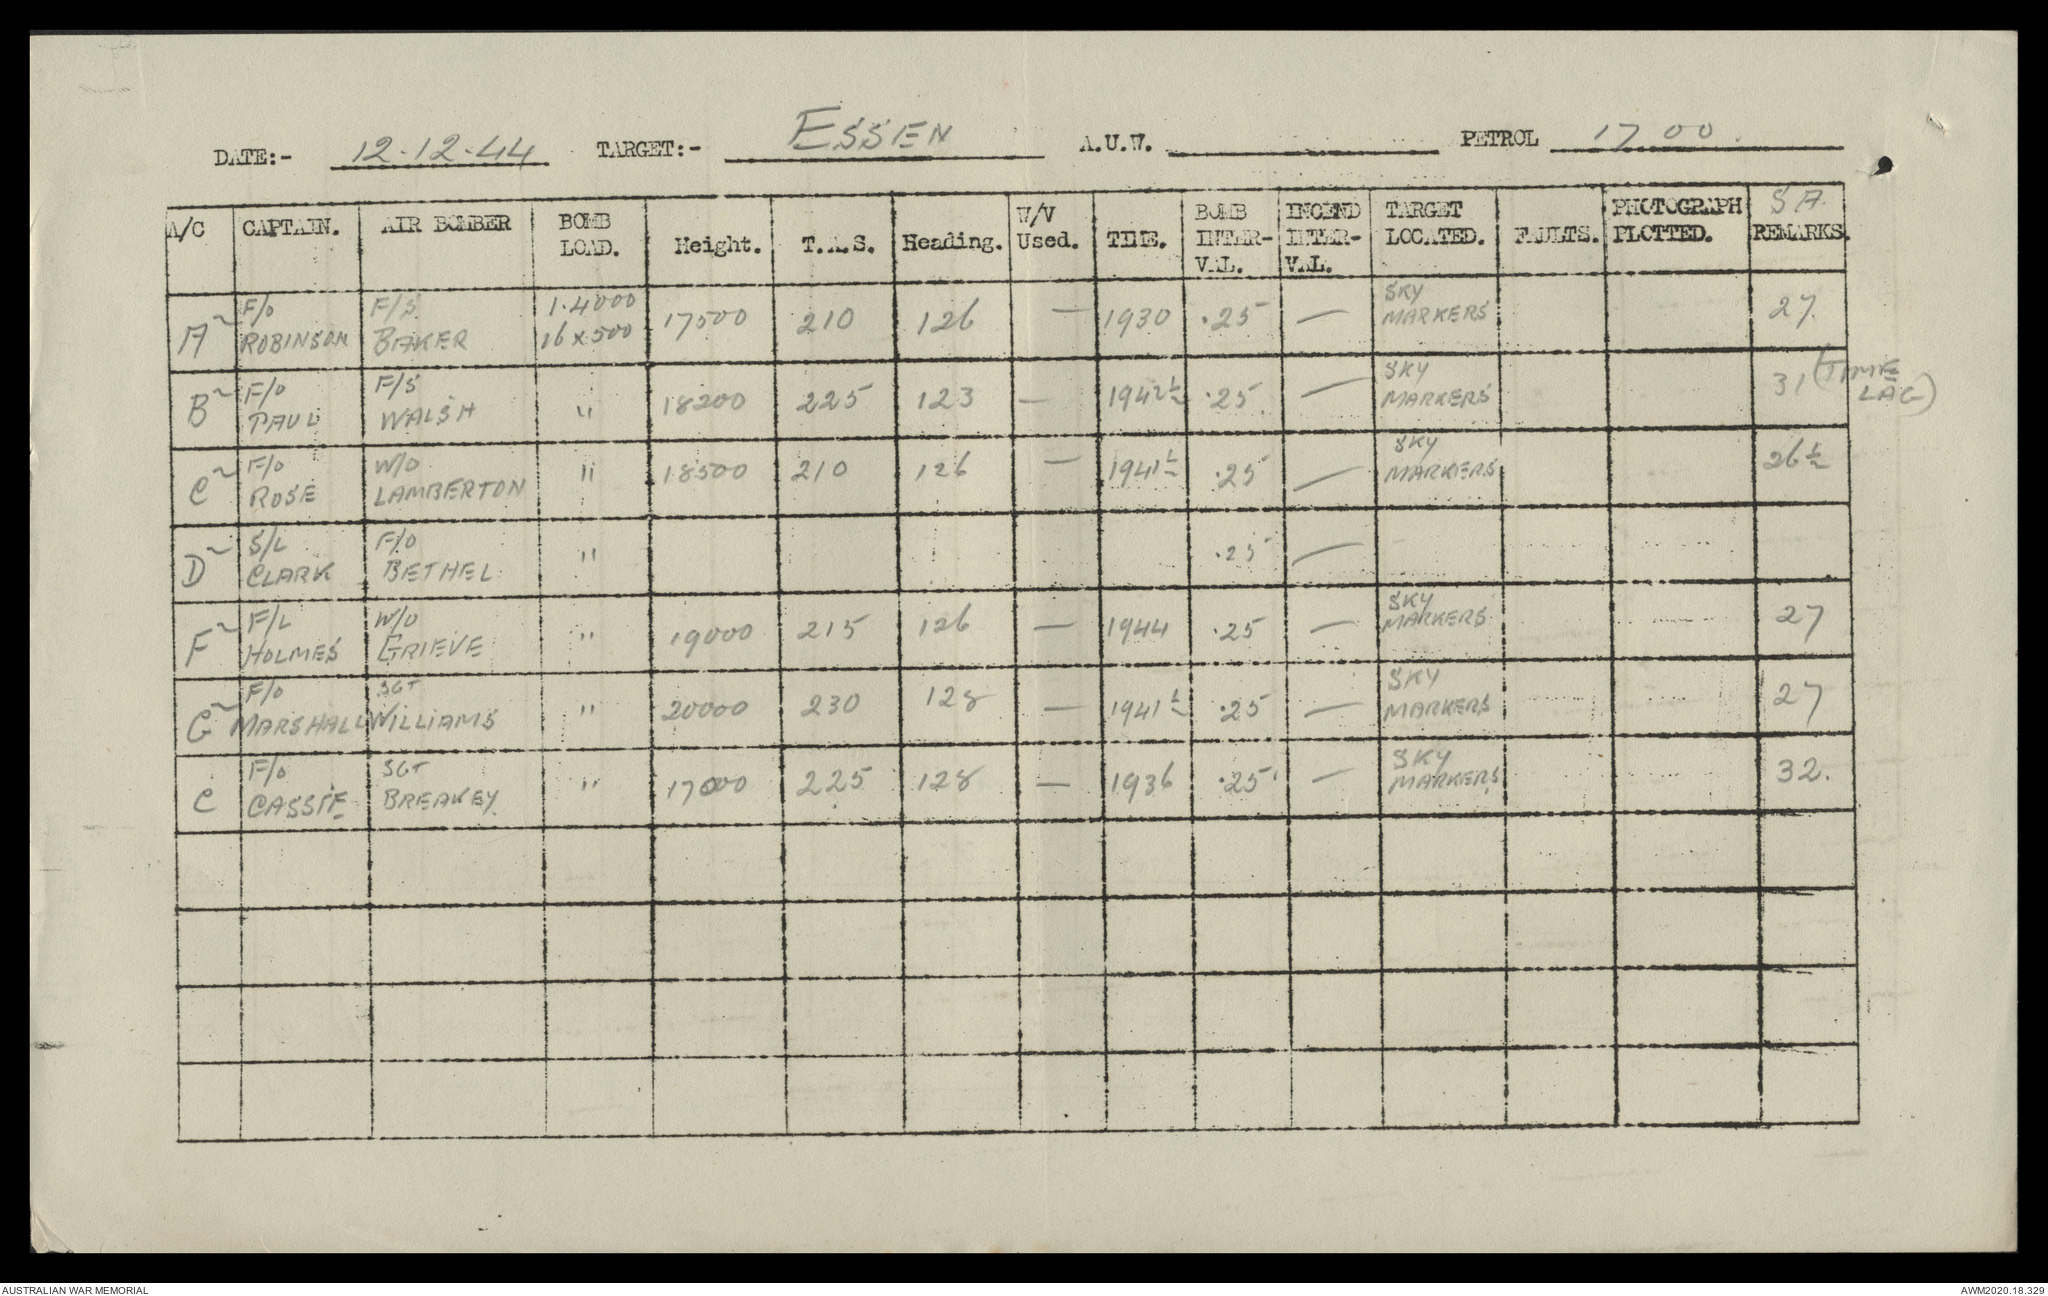 DATE:- 12.12.44 TARGET:- ESSEN A.U.W. PETROL 1700.
A/C CAPTAIN. AIR BOMBER BOMB LOAD. Height. T.A.S. Heading. W/V Used. TIME. BOMB INTER-VAL. INCEND INTER-VAL. TARGET LOCATED. FAULTS. PHOTOGRAPH PLOTTED. S.A. REMARKS.
A~ F/O ROBINSON F/S BAKER 1.4000 16 x 500 17500 210 126 — 1930 .25 — SKY MARKERS 27.
B~ F/O PAUL F/S WALSH " 18200 225 123 — 1942½ .25 — SKY MARKERS 31 (TIME LAG)
C~ F/O ROSE W/O LAMBERTON " 18500 210 126 — 1941½ .25 — SKY MARKERS 26½
D~ S/L CLARK F/O BETHEL " .25 —
F~ F/L HOLMES W/O GRIEVE " 19000 215 126 — 1944 .25 — SKY MARKERS 27
G~ F/O MARSHALL SGT WILLIAMS " 20000 230 128 — 1941½ .25 — SKY MARKERS 27
C F/O CASSIE SGT BREAKEY " 17000 225 128 — 1936 .25 — SKY MARKERS 32.
AUSTRALIAN WAR MEMORIAL AWM2020.18.329